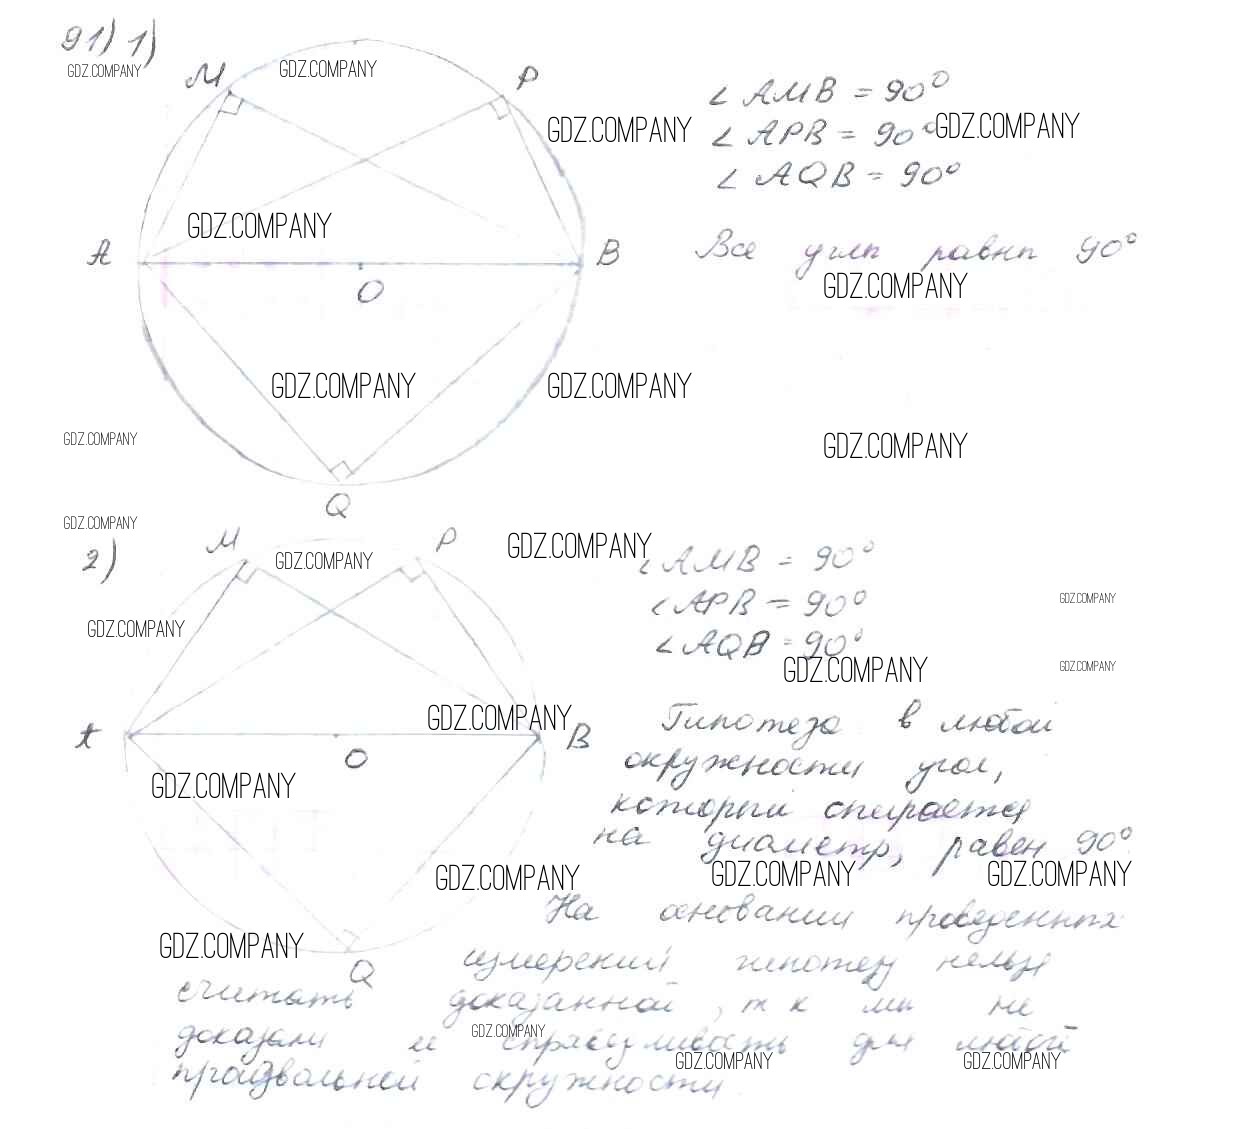 91) 1)
GDZ.COMPANY
M
GDZ.COMPANY
P
∠AMB = 90°
GDZ.COMPANY
∠APB = 90°
GDZ.COMPANY
∠AQB = 90°
GDZ.COMPANY
A
B
Все углы равны 90°
O
GDZ.COMPANY
GDZ.COMPANY
GDZ.COMPANY
GDZ.COMPANY
GDZ.COMPANY
Q
GDZ.COMPANY
2)
M
GDZ.COMPANY
P
GDZ.COMPANY
∠AMB = 90°
∠APB = 90°
GDZ.COMPANY
GDZ.COMPANY
∠AQB = 90°
GDZ.COMPANY
GDZ.COMPANY
A
O
GDZ.COMPANY
B
Гипотеза в любой
окружности угол,
GDZ.COMPANY
который опирается
на диаметр, равен 90°
GDZ.COMPANY
GDZ.COMPANY
GDZ.COMPANY
На основании проведенных
GDZ.COMPANY
Q
измерений гипотезу нельзя
считать доказанной, т к мы не
GDZ.COMPANY
доказали ее справедливость для любой
GDZ.COMPANY
GDZ.COMPANY
произвольной окружности